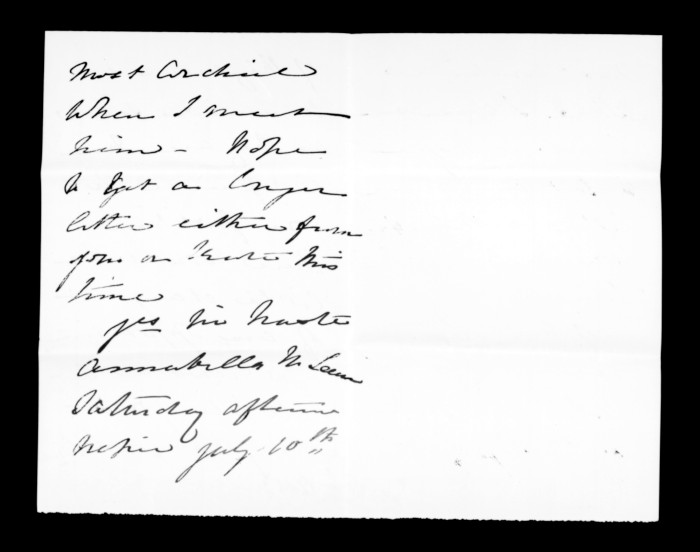 most Cordial
when I meet
him - Hope
to get a longer
letter either from
you or Kate this
time
yrs in haste
Annabella McLean
Saturday afternoon
Napier July 10th